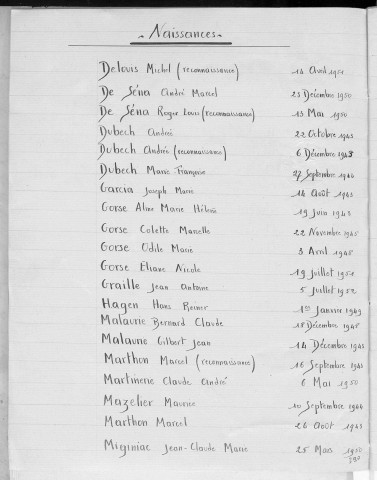 - Naissances -
Delouis Michel (reconnaissance) 14 Avril 1951
De Séna André Marcel 23 Décembre 1950
De Séna Roger Louis (reconnaissance) 13 Mai 1950
Dubech André 22 Octobre 1943
Dubech André (reconnaissance) 6 Décembre 1943
Dubech Marie-Françoise 27 Septembre
Garcia Joseph Marie 14 Août 1943
Gorse Aline Marie Hélène 19 juin 1943
Gorse Colette Marcelle 22 Novembre 1945
Gorse Odile Marie 3 Avril 1945
Gorse Eliane Nicole 19 juillet 1951
Graille Jean Antoine 5 juillet 1952
Hagen Hans Reiner 1er Janvier 1949
Malaurie Bernard Claude 18 Décembre 1945
Malaurie Gilbert Jean 14 Décembre
Marthon Marcel (reconnaissance) 16 Septembre
Martinerie Claude André 6 Mai 1950
Mazelier Maurice 10 Septembre 1944
Marthon Marcel 26 Août 1943
Mirginiac Jean-Claude Marie 25 Mars 1950